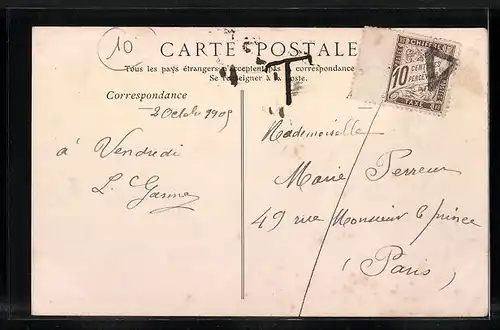 10
CARTE POSTALE
Tous les pays étrangers n'acceptent pas la correspondance
Se renseigner à la poste.
T
CHIFFRE
10
CENTIMES
A PERCEVOIR
TAXE
Correspondance
2 Octob 1905
à Vendredi
L.
Mademoiselle
Marie Perreur
49 rue Monsieur le prince
(Paris)